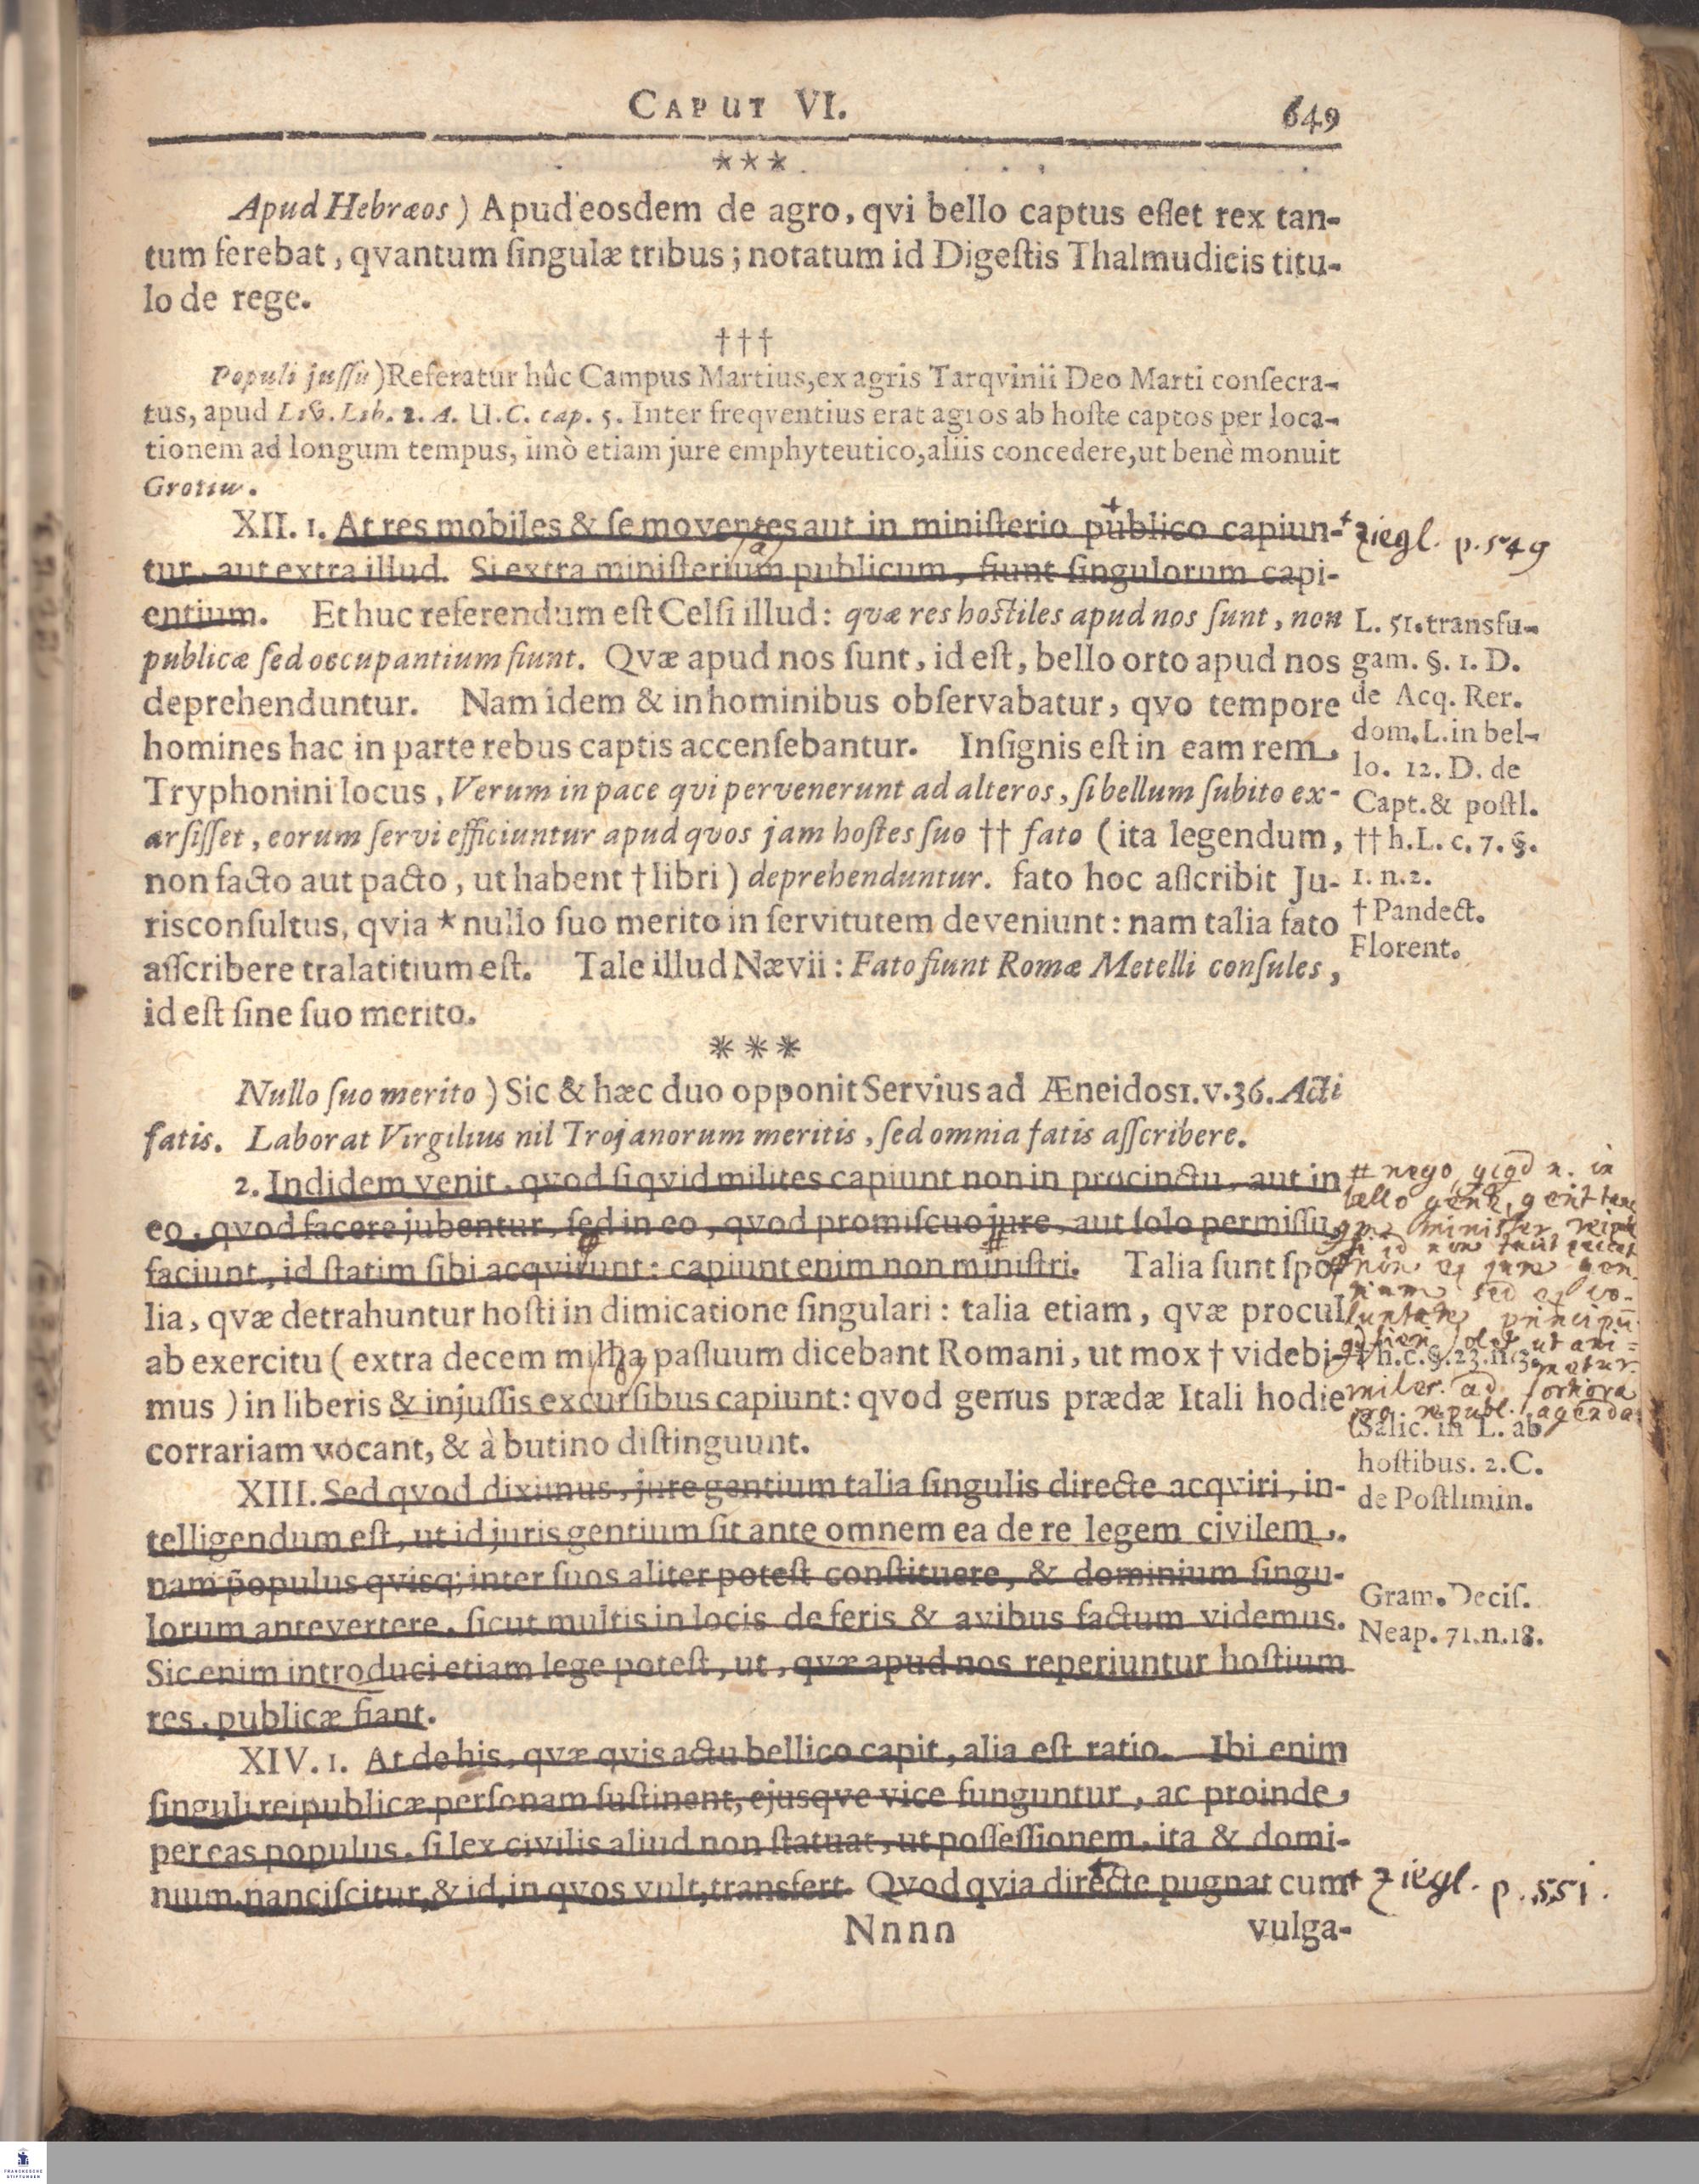 CAPUT VI. 649
***
Apud Hebræos) Apud eosdem de agro, qvi bello captus eſſet rex tan-
tum ferebat, qvantum ſingulæ tribus; notatum id Digeſtis Thalmudicis titu-
lo de rege.
†††
Populi juſſu) Referatur hûc Campus Martius, ex agris Tarqvinii Deo Marti conſecra-
tus, apud Liv. Lib. 2. A. U.C. cap. 5. Inter freqventius erat agros ab hoſte captos per loca-
tionem ad longum tempus, imò etiam jure emphyteutico, aliis concedere, ut benè monuit
Grotius.
XII. 1. At res mobiles & ſe moventes aut in miniſterio publico capiun-
tur, aut extra illud. Si extra miniſterium publicum, fiunt ſingulorum capi-
entium. Et huc referendum eſt Celſi illud: qvæ res hoſtiles apud nos ſunt, non
publicæ ſed occupantium fiunt. Qvæ apud nos ſunt, id eſt, bello orto apud nos
deprehenduntur. Nam idem & in hominibus obſervabatur, qvo tempore
homines hac in parte rebus captis accenſebantur. Inſignis eſt in eam rem,
Tryphonini locus, Verum in pace qvi pervenerunt ad alteros, ſi bellum ſubito ex-
arſiſſet, eorum ſervi efficiuntur apud qvos jam hoſtes ſuo †† fato (ita legendum,
non facto aut pacto, ut habent † libri) deprehenduntur. fato hoc aſſcribit Ju-
risconſultus, qvia * nullo ſuo merito in ſervitutem deveniunt: nam talia fato
aſſcribere tralatitium eſt. Tale illud Nævii: Fato fiunt Romæ Metelli conſules,
id eſt ſine ſuo merito.
***
Nullo ſuo merito) Sic & hæc duo opponit Servius ad Æneidos 1. v. 36. Acti
fatis. Laborat Virgilius nil Trojanorum meritis, ſed omnia fatis aſſcribere.
2. Indidem venit, qvod ſi qvid milites capiunt non in procinctu, aut in
eo, qvod facere jubentur, ſed in eo, qvod promiſcuo jure, aut ſolo permiſſu
faciunt, id ſtatim ſibi acqvirunt: capiunt enim non miniſtri. Talia ſunt ſpo-
lia, qvæ detrahuntur hoſti in dimicatione ſingulari: talia etiam, qvæ procul
ab exercitu (extra decem millia paſſuum dicebant Romani, ut mox † videbi-
mus) in liberis & injuſſis excurſibus capiunt: qvod genus prædæ Itali hodie
corrariam vocant, & à butino diſtinguunt.
XIII. Sed qvod diximus, jure gentium talia ſingulis directe acqviri, in-
telligendum eſt, ut id juris gentium ſit ante omnem ea de re legem civilem,.
nam populus qvisq; inter ſuos aliter poteſt conſtituere, & dominium ſingu-
lorum antevertere, ſicut multis in locis de feris & avibus factum videmus.
Sic enim introduci etiam lege poteſt, ut, qvæ apud nos reperiuntur hoſtium
res, publicæ fiant.
XIV. 1. At de his, qvæ qvis actu bellico capit, alia eſt ratio. Ibi enim
ſinguli reipublicæ perſonam ſuſtinent, ejusqve vice funguntur, ac proinde,
per eas populus, ſi lex civilis aliud non ſtatuat, ut poſſeſſionem, ita & domi-
nium nanciſcitur, & id, in qvos vult, transfert. Qvod qvia directe pugnat cum
Nnnn vulga-
† Ziegl. p. 549
L. 51. transfu-
gam. §. 1. D.
de Acq. Rer.
dom. L. in bel-
lo. 12. D. de
Capt. & poſtl.
†† h. L. c. 7. §.
1. n. 2.
† Pandect.
Florent.
# nego
bello
non ex jure gen-
tium sed ex vo-
luntate principū
† h. c. §. 23. n. 3.
ad fortiora
pro republ. agenda
Salic. in L. ab
hoſtibus. 2. C.
de Poſtlimin.
Gram. Deciſ.
Neap. 71. n. 18.
† Ziegl. p. 551.
FRANCKESCHE
STIFTUNGEN